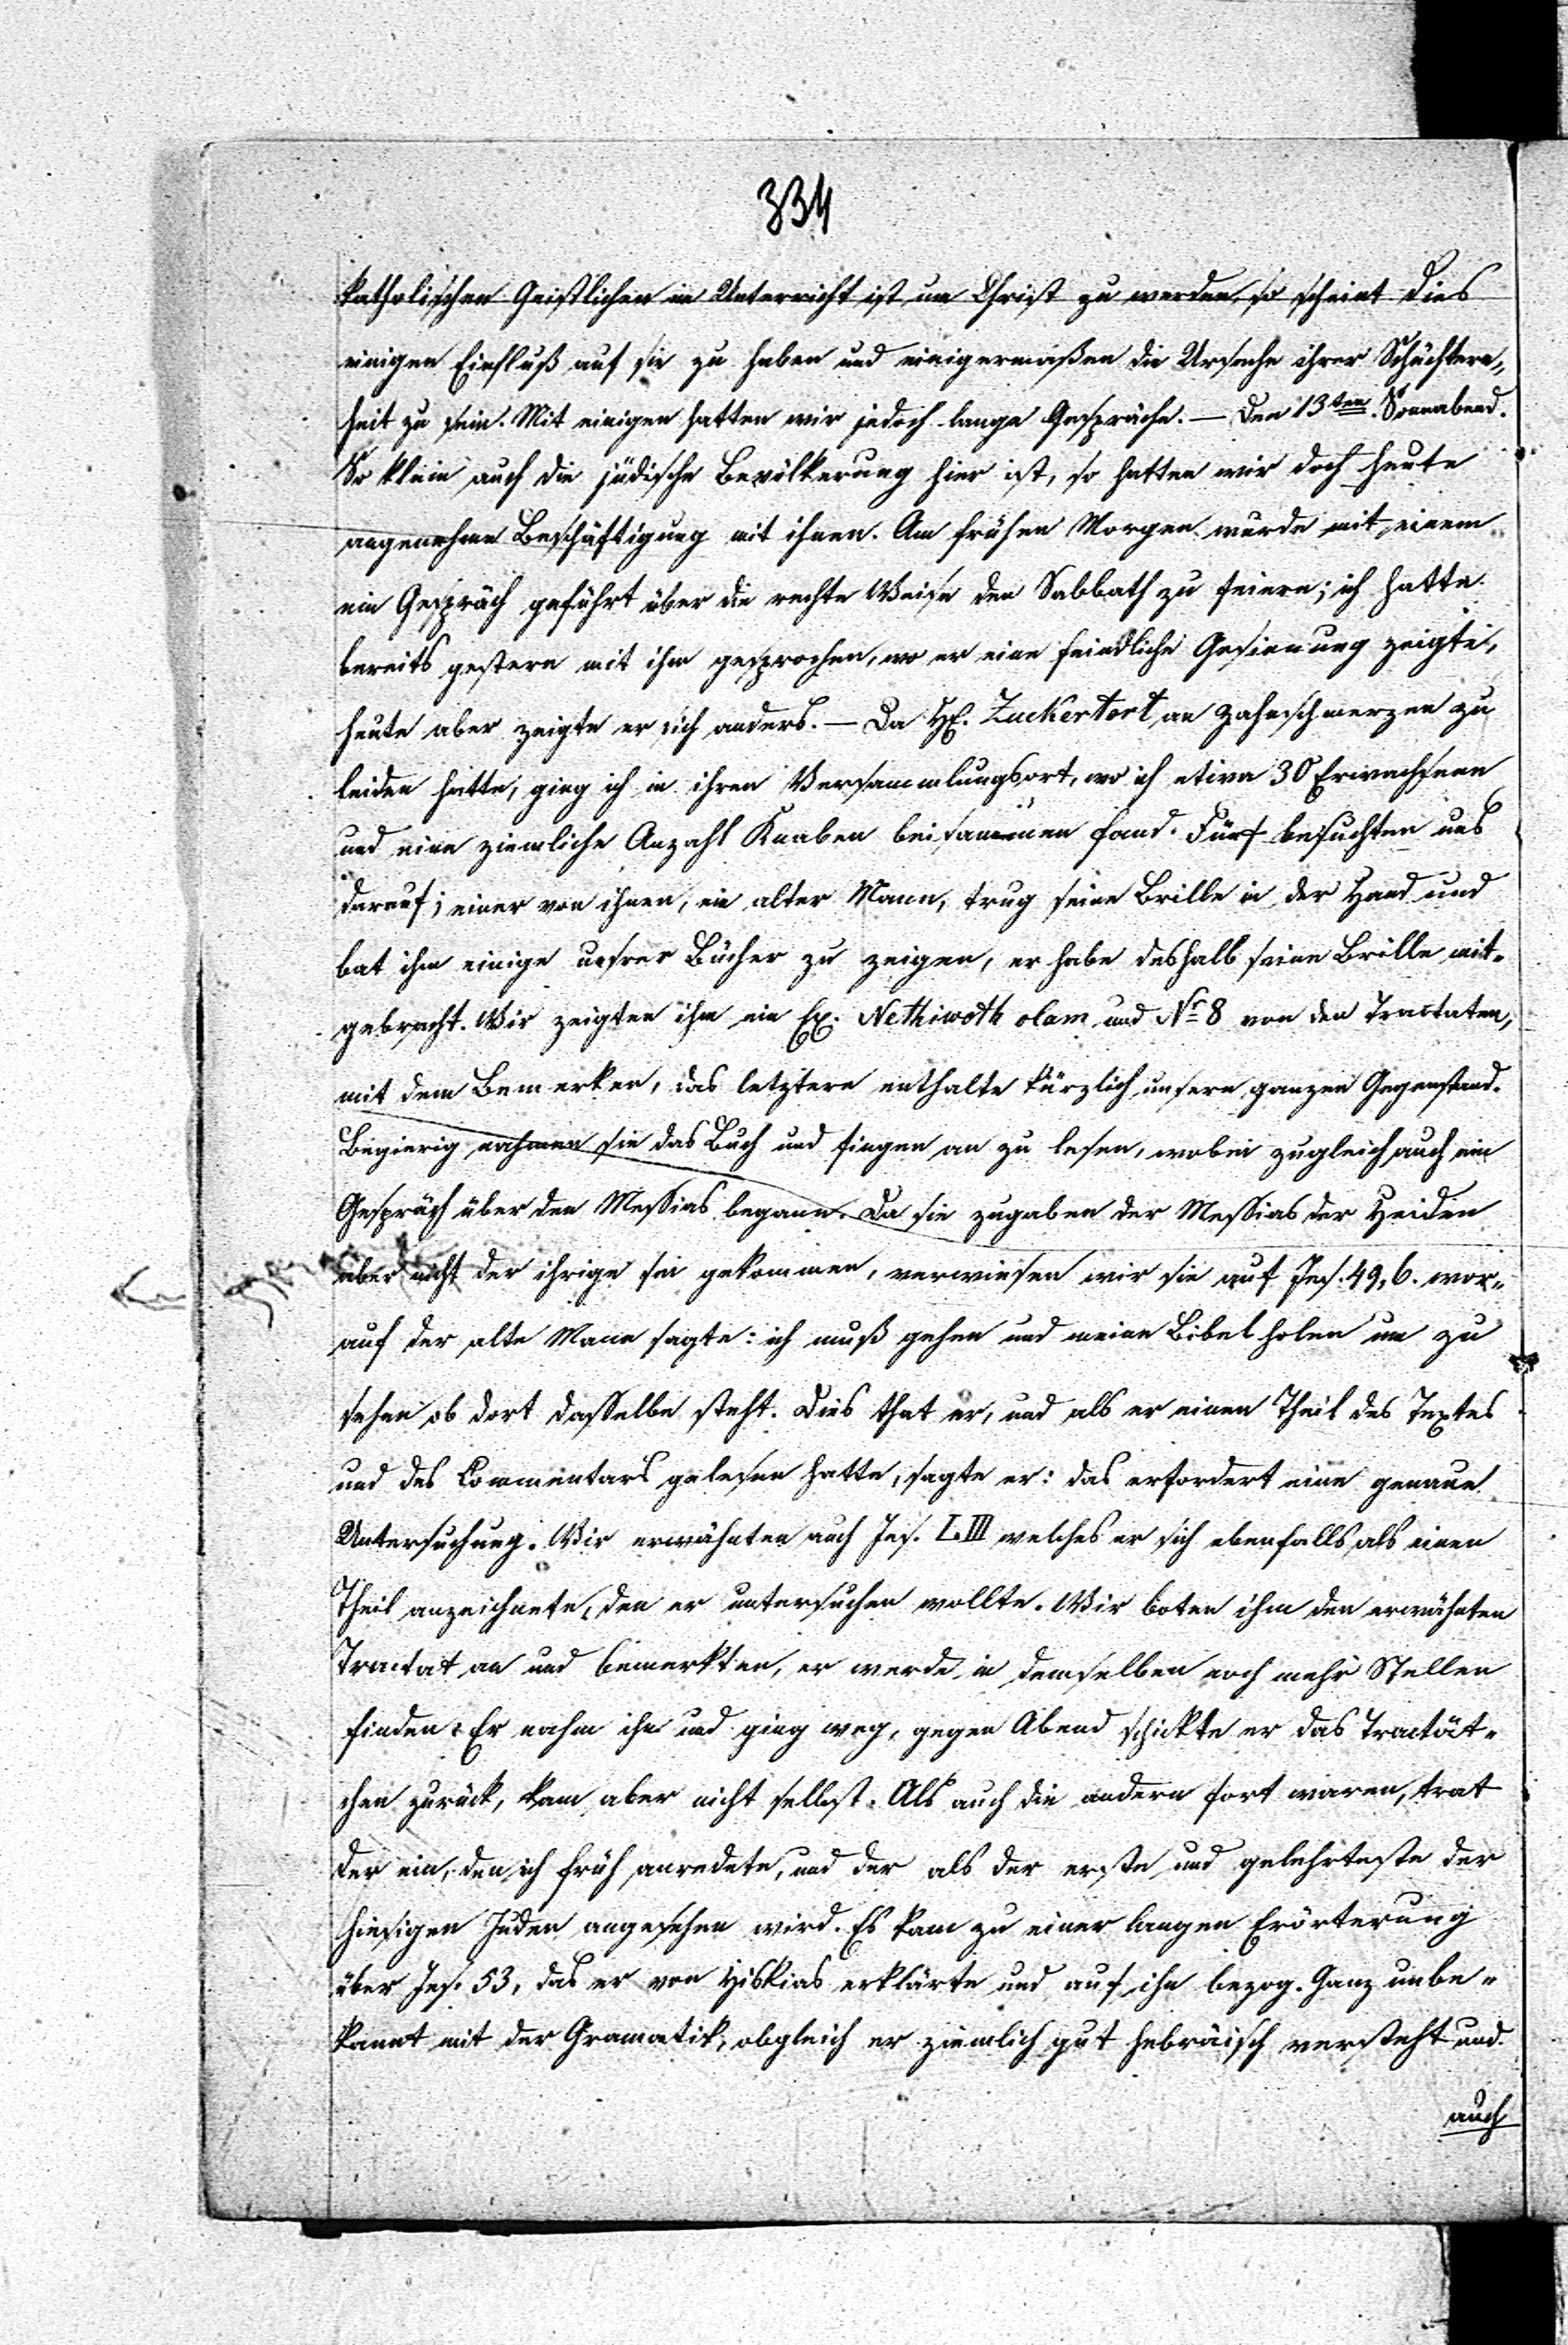 334
katholischen Geistlichen in Unterricht ist, um Christ zu werden, so scheint dies
einigen Einfluß auf sie zu haben und einigermaßen die Ursache ihrer Schüchtern„
heit zu sein. Mit einigen hatten wir jedoch lange Gespräche. — Den 13ten. Sonnabend.
So klein auch die jüdische Bevölkerung hier ist, so hatten wir doch heute
angenehme Beschäftigung mit ihnen. Am frühen Morgen wurde mit einem
ein Gespräch geführt über die rechte Weise den Sabbath zu feiern; ich hatte
bereits gestern mit ihm gesprochen, wo er eine feindliche Gesinnung zeigte,
heute aber zeigte er sich anders. — Da H. Zuckertort an Zahnschmerzen zu
leiden hatte, ging ich in ihren Versammlungsort, wo ich etwa 30 Erwachsene
und eine ziemliche Anzahl Knaben beisammen fand. Fünf besuchten uns
darauf; einer von ihnen, ein alter Mann, trug seine Brille in der Hand und
bat ihm einige unsrer Bücher zu zeigen, er habe deshalb seine Brille mit„
gebracht. Wir zeigten ihm ein Ex. Nethiwoth olam und No 8 von den Tractaten,
mit dem Bemerken, das letztere enthalte kürzlich unsern ganzen Gegenstand.
Begierig nahmen sie das Buch und fingen an zu lesen, wobei zugleich auch ein
Gespräch über den Messias begann. Da sie zugaben der Messias der Heiden
aber nicht der ihrige sei gekommen, verwiesen wir sie auf Jes. 49, 6. wor„
auf der alte Mann sagte: ich muß gehen und meine Bibel holen um zu
sehen ob dort dasselbe steht. Dies that er, und als er einen Theil des Textes
und des Commentars gelesen hatte, sagte er: das erfordert eine genaue
Untersuchung. Wir erwähnten auch Jes. LIII welches er sich ebenfalls als einen
Theil anzeichnete, den er untersuchen wollte. Wir boten ihm den erwähnten
Tractat an und bemerkten, er werde in demselben noch mehr Stellen
finden. Er nahm ihn und ging weg, gegen Abend schickte er das Tractät„
chen zurück, kam aber nicht selbst. Als auch die andern fort waren, trat
der ein, den ich früh anredete, und der als der erste und gelehrteste der
hiesigen Juden angesehen wird. Es kam zu einer langen Erörterung
über Jes. 53, das er von Hiskias erklärte und auf ihn bezog. Ganz unbe„
kannt mit der Gramatik, obgleich er ziemlich gut hebräisch versteht und
auch